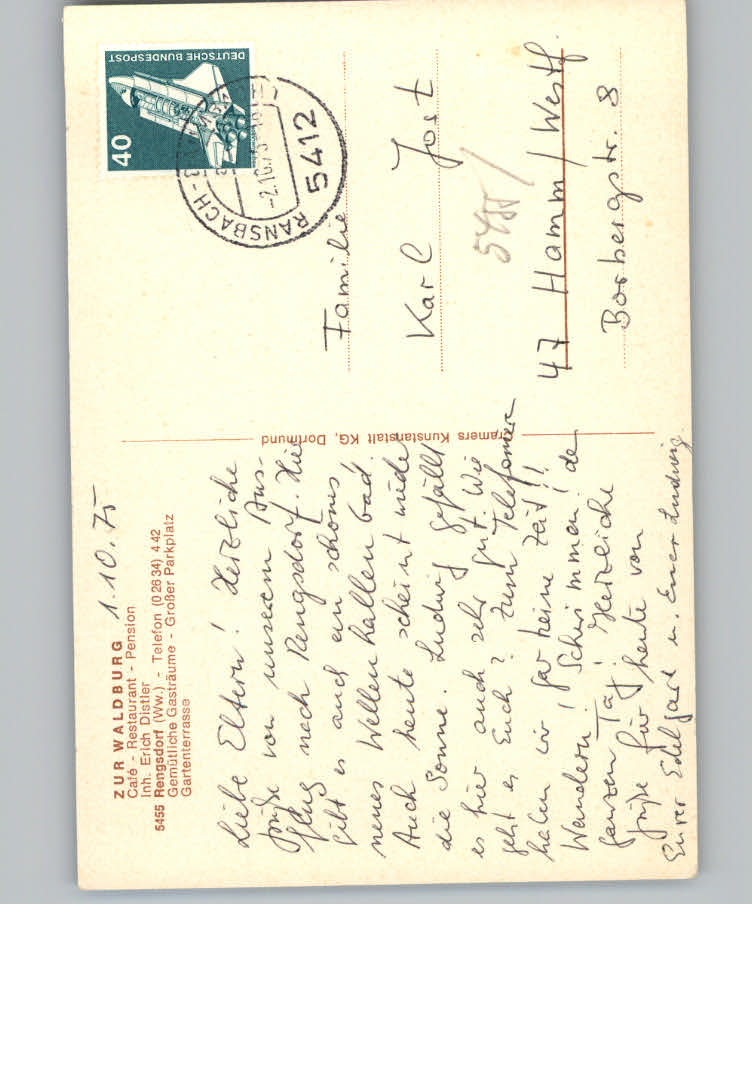 ZUR WALDBURG
Café - Restaurant - Pension
Inh. Erich Distler
5455 Rengsdorf (Ww.) - Telefon (0 26 34) 4 42
Gemütliche Gasträume - Großer Parkplatz
Gartenterrasse
1.10.75
Liebe Eltern! Herzliche
Grüße von unserem Aus-
flug nach Rengsdorf. Hier
gibt es auch ein schönes
neues Wellenhallenbad.
Auch heute scheint wieder
die Sonne. Ludwig gefällt
es hier auch sehr gut. Wie
geht es Euch? Zum Telefonieren
haben wir gar keine Zeit!!
Wandern! Schwimmen! den
ganzen Tag! Herzliche
Grüße für heute von
Eurer Edelgard u. Euer Ludwig.
Cramers Kunstanstalt KG, Dortmund
DEUTSCHE BUNDESPOST
40
RANSBACH-
-2.10.75
5412
Familie
Karl Jost
47 Hamm/Westf.
Borbergstr. 8